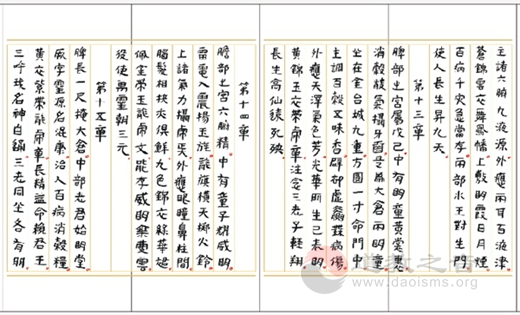 主諸六府九液源外應兩耳百液津
蒼錦雲衣舞龍幡上致明霞日月煙
百病千災急當存兩部水王對生門
使人長生昇九天
第十三章
脾部之宮屬戊己中有明童黃裳裏
消穀散氣攝牙齒是為太倉兩明童
坐在金台城九重方圓一寸命門中
主調百穀五味香辟卻虛羸無病傷
外應尺澤氣色芳光華所生以表明
黃錦玉衣帶虎章注念三老子輕翔
長生高仙遠死殃
第十四章
膽部之宮六腑精中有童子曜威明
雷電八震揚玉旌龍旗橫天擲火鈴
主諸氣力攝虎兵外應眼瞳鼻柱間
腦髮相扶亦俱鮮九色錦衣綠華裙
佩金帶玉龍虎文能存威明乘慶雲
役使萬靈朝三元
第十五章
脾長一尺掩太倉中部老君治明堂
厥字靈元名混康治人百病消穀糧
黃衣紫帶龍虎章長精益命賴君王
三呼我名神自通三老同坐各有朋
道教之音
www.daoisms.org